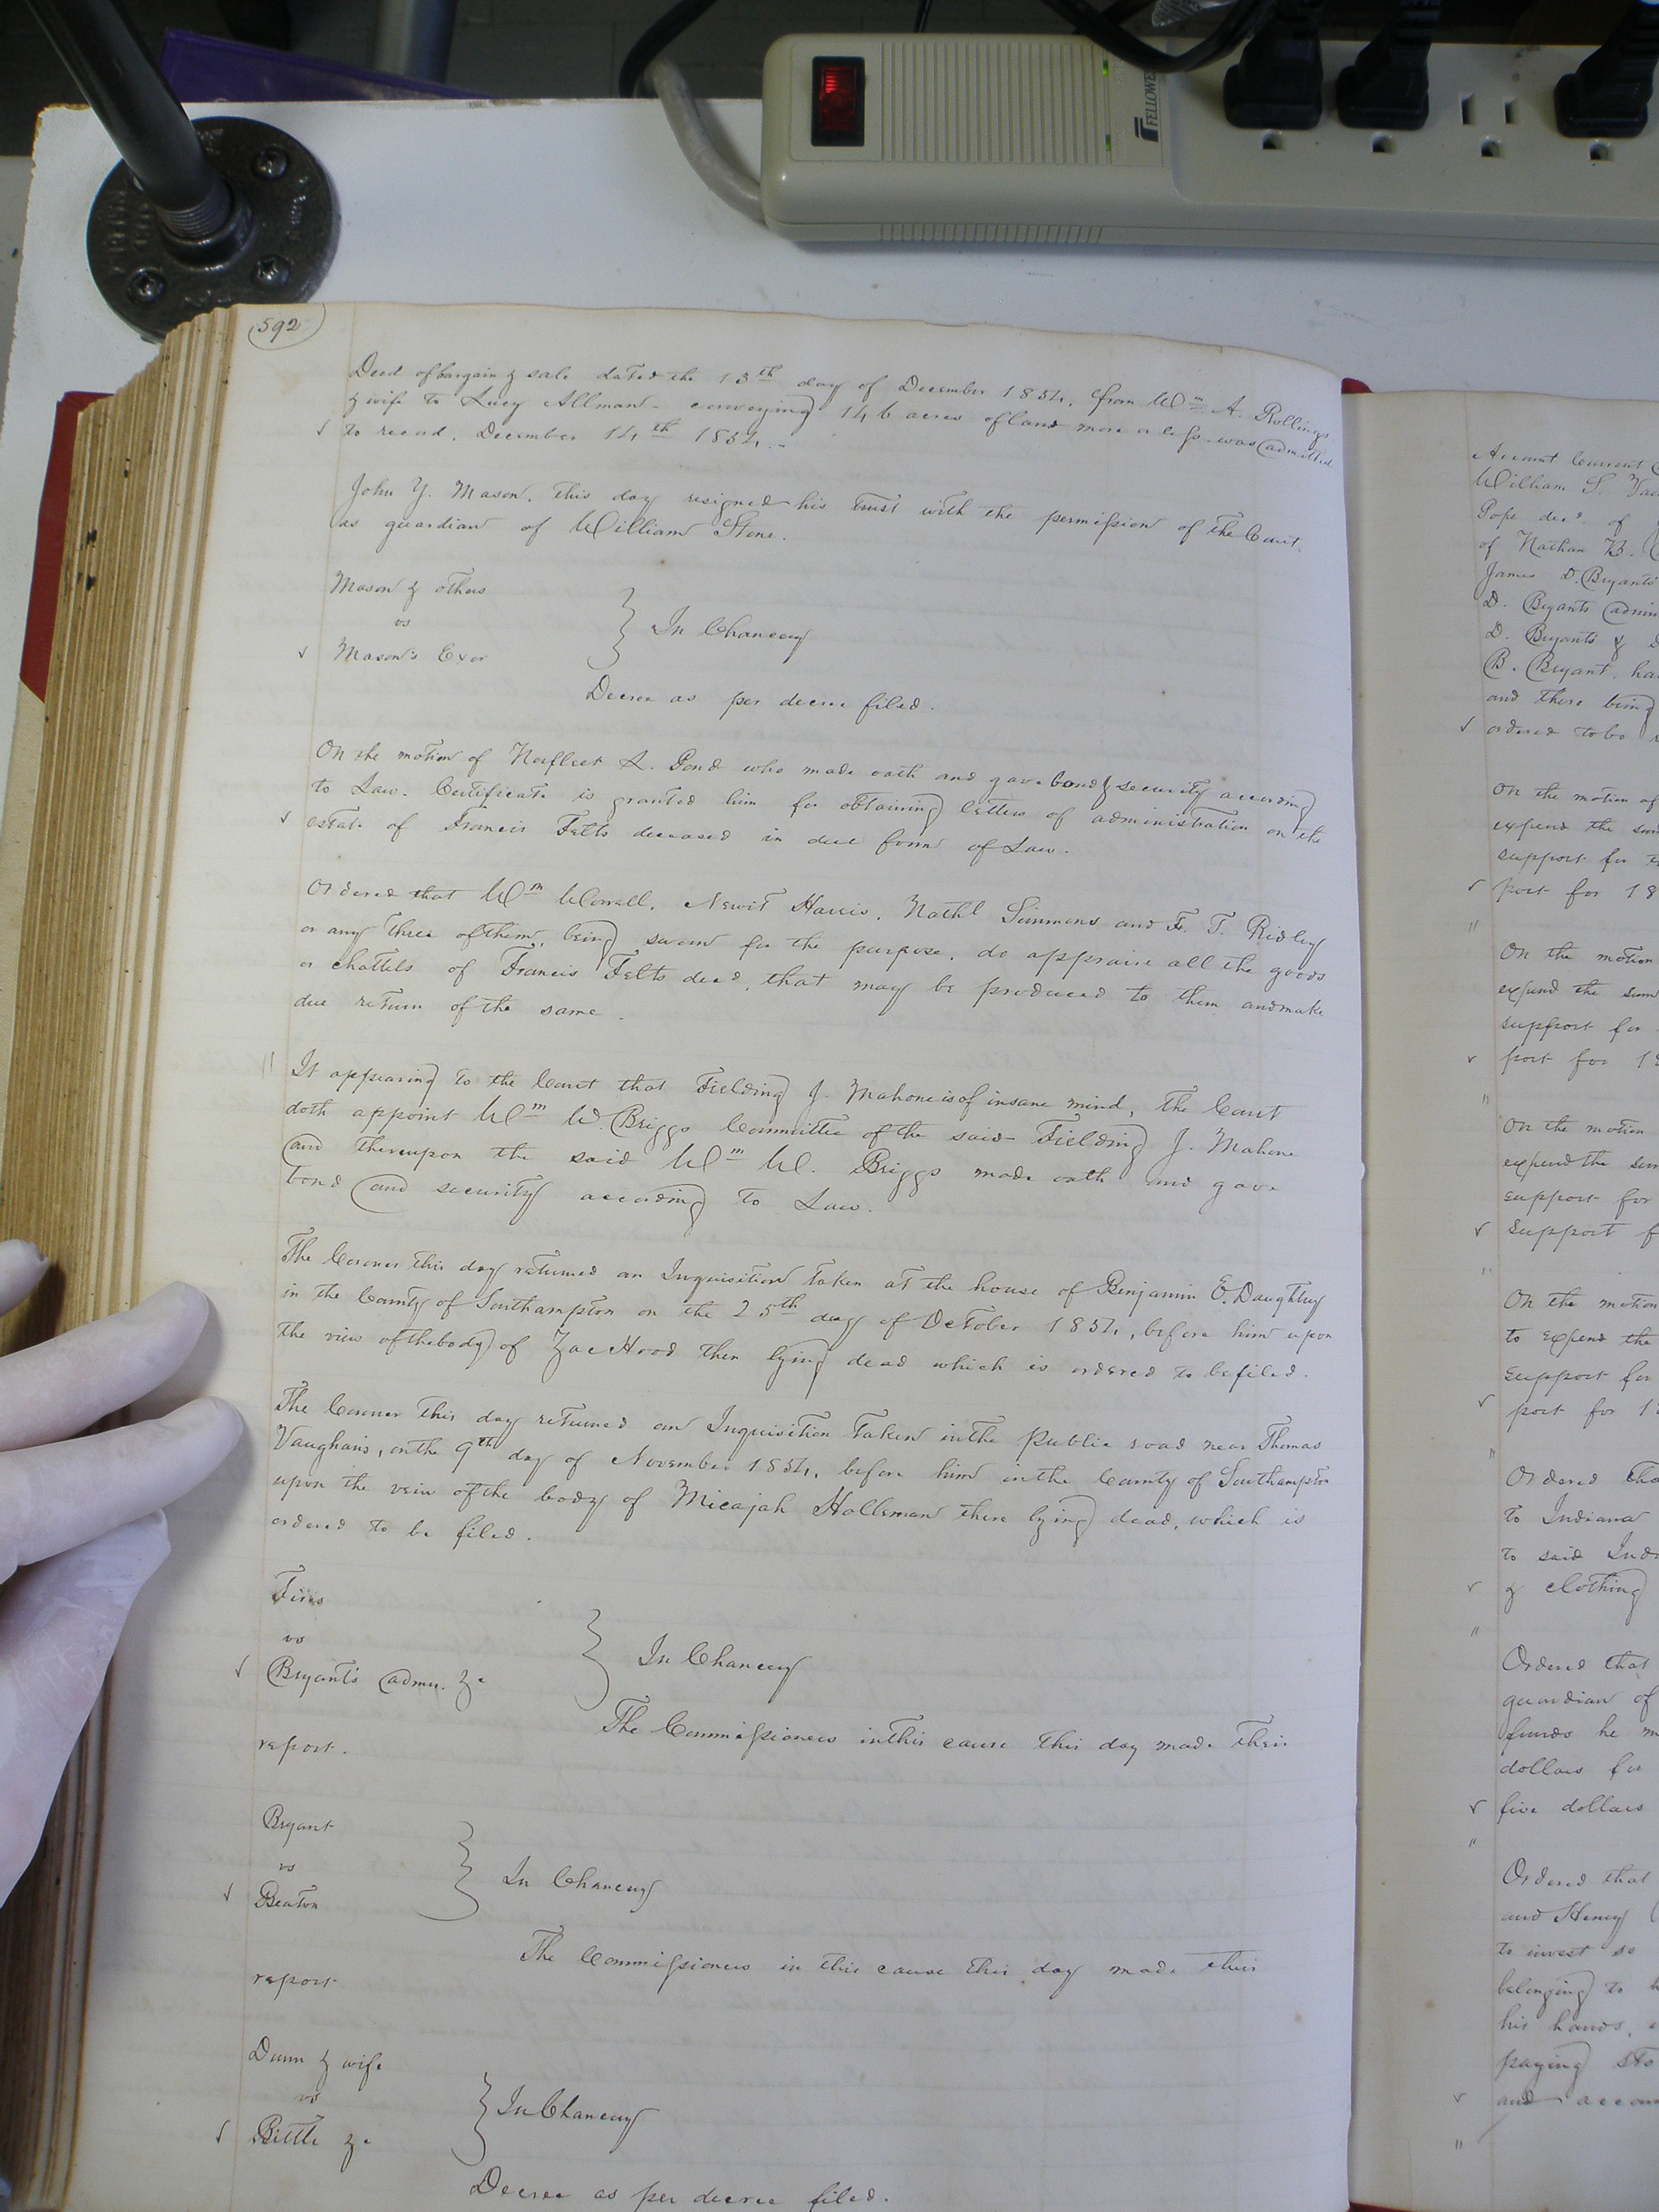 FELLOWES
592
Deed of bargain & sale dated the 13th day of December 1834, from Wm A. Rollings
& wife to Lucy Allman - conveying 146 acres of land more or less was admitted
to record. December 14th 1834. -
John Y. Mason, this day resigned his trust with the permission of the Court,
as guardian of William Stone.
Mason & others
vs
Mason's Exor
In Chancery
Decree as per decree filed.
On the motion of Norfleet R. Pond who made oath and gave bond & security according
to Law. Certificate is granted him for obtaining letters of administration on the
estate of Francis Felts deceased in due form of Law.
Ordered that Wm Worrell, Newit Harris, Nathl Simmons and Fr. T. Ridley
or any three of them, being sworn for the purpose, do appraise all the goods
or chattels of Francis Felts decd, that may be produced to them and make
due return of the same.
It appearing to the Court that Fielding J. Mahone is of insane mind, the Court
doth appoint Wm W. Briggs Committee of the said Fielding J. Mahone
and thereupon the said Wm W. Briggs made oath and gave
bond and security according to Law.
The Coroner this day returned an Inquisition taken at the house of Benjamin E. Daughtry
in the County of Southampton on the 25th day of October 1834, before him upon
the view of the body of Zac Hood then lying dead which is ordered to be filed.
The Coroner this day returned an Inquisition taken in the Public road near Thomas
Vaughan's, on the 9th day of November 1834, before him in the County of Southampton
upon the veiw of the body of Micajah Holleman there lying dead, which is
ordered to be filed.
vs
Bryant's admr. &c
In Chancery
The Commissioners in this cause this day made their
report.
Bryant
vs
Beaton
In Chancery
The Commissioners in this cause this day made their
report
Dunn & wife
vs
Bittle &c
In Chancery
Decree as per decree filed.
Account Current
William S.
Pope decd. of
of Nathan B.
James D. Bryants
D. Bryants admin
D. Bryants &
B. Bryant, ha
and there being
ordered to be
On the motion of
expend the sum
support for
port for 18
On the motion
expend the sum
support for
port for 18
On the motion
expend the sum
support for
support f
On the motion
to expend the
support for
port for 1
Ordered tha
to Indiana
to said Ind
& clothing
Ordered that
guardian of
funds he m
dollars for
five dollars
Ordered that
and Henry
to invest so
belonging to
his hands,
paying
and accou